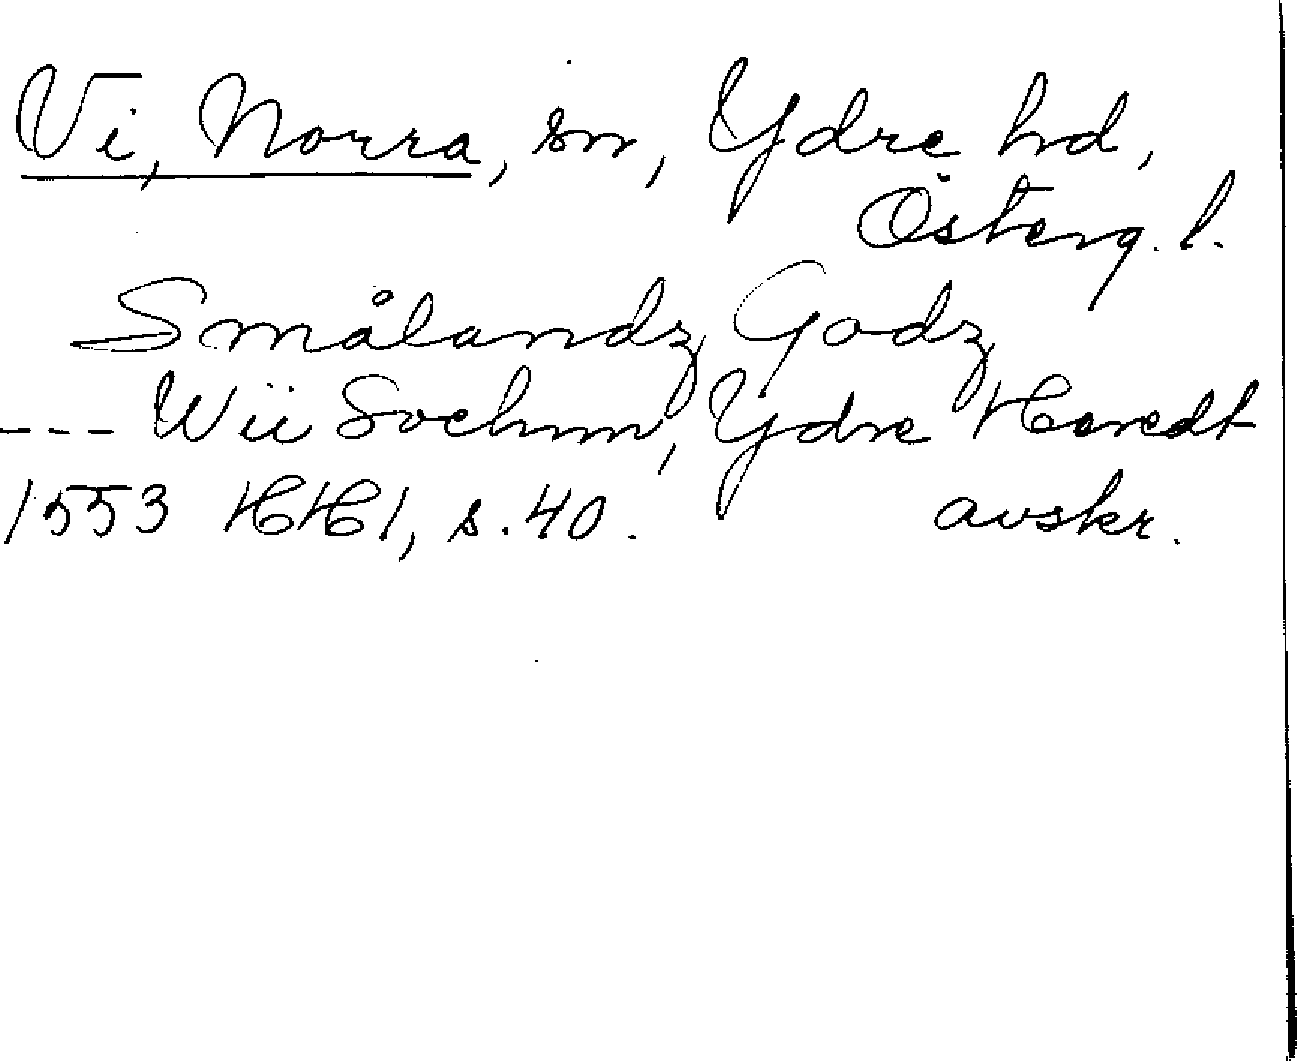 Vi, Norra, sn, Ydre hd,
Österg. l.
Smålandz Godz
--- Wii Sochnn, Ydre Haredt
1553 HH1, s. 40. avskr.